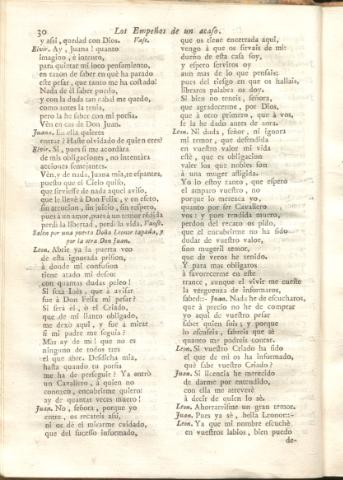 30 Los Empeños de un acaso.
y assi, quedad con Dios. Vase.
Elvir. Ay, Juana! quanto
imagino, è intento,
para quietar mi loco pensamiento,
en razon de saber en què ha parado
este pesar, que tanto me ha costado!
Nada de èl saber puedo,
y con la duda tan rabal me quedo,
como antes la tenia,
pero la he saber con mi porfia.
Vèn en cas de Don Juan.
Juana. En ella quieres
entrar? Haste olvidado de quien eres?
Elvir. Sì, pues si me acordára
de mis obligaciones, no intentára
acciones semejantes.
Vèn, y de nada, Juana mia, te espantes,
puesto que el Cielo quiso,
que sirviesse de nada aquel aviso,
que le llevè à Don Felix, y en efeto,
sin atencion, sin juicio, sin respeto,
pues à un amor, pues à un temor rèndida
perdì la libertad, perdì la vida. Vanse.
Salen por una puerta Doña Leonor tapada, y
por la otra Don Juan.
Leon. Abrir vì la puerta veo
de esta ignorada prision,
à donde mi confusion
tiene atado mi deseo:
con quantas dudas peleo!
Si serà Luis, que à avisar
fue à Don Felix mi pesar?
Si serà èl, ò el Criado,
que de mi llanto obligado,
me dexò aqui, y fue à mirar
si mi padre me seguia?
Mas ay de mi! que no es
ninguno de todos tres
el que abre. Desdicha mia,
hasta quando tu porfia
me ha de perseguir? Ya entrò
un Cavallero, à quien no
conozco, encubrirme quiero:
ay de quantas veces muero!
Juan. No, señora, porque yo
entro, os recateis assi,
ni os dè el mirarme cuidado,
que del sucesso informado,
que os tiene encerrada aqui,
vengo à que os sirvais de mi:
dueño de esta casa soy,
y espero serviros oy
aun mas de lo que pensais:
pues del riesgo en que os hallais,
libraros palabra os doy.
Si bien no teneis, señora,
que agradecerme, por Dios,
que à otro primero, que à vos,
se la he dado antes de aora.
Leon. Ni duda, señor, ni ignora
mi temor, que defendida
en vuestro valor mi vida
estè, que es obligacion
valer los que nobles son
à una muger afligida.
Yo lo estoy tanto, que espero
el amparo vuestro, no
porque lo merezca yo,
quanto por ser Cavallero
vos: y pues rendida muero,
perdon del recato os pido,
que el encubrirme no ha sido
dudar de vuestro valor,
sino mugeril temor,
que de veros he tenido.
Y para mas obligaros
à favorecerme en este
trance, aunque el vivir me cueste
la verguenza de informaros,
sabed:- Juan. Nada he de escucharos,
que à precio no he de comprar
yo aqui de vuestro pesar
saber quien sois; y porque
lo escuseis, sabreis que sè
quanto me podreis contar.
Leon. Si vuestro Criado ha sido
el que de mi os ha informado,
què sabe vuestro Criado?
Juan. Si licencia he merecido
de darme por entendido,
con ella me atreverè
à decir de quien lo sè.
Leon. Ahorrareisme un gran temor.
Juan. Pues ya sè, bella Leonor:-
Leon. Ya que mi nombre escuchè
en vuestros labios, bien puedo
de-